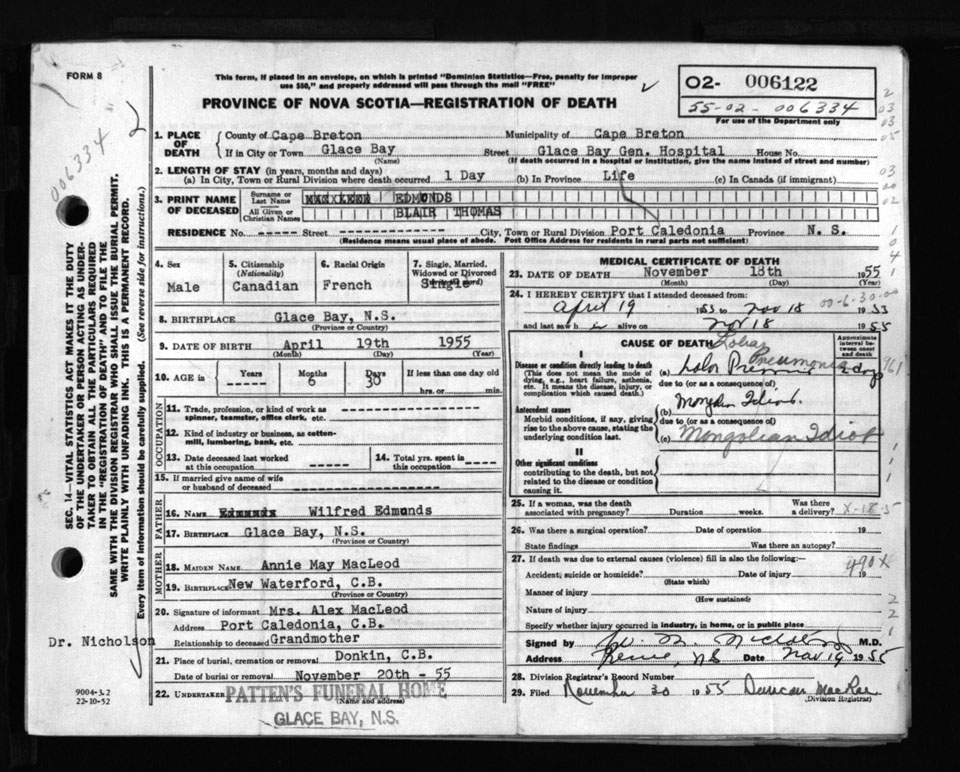 FORM 8
This form, if placed in an envelope, on which is printed "Dominion Statistics—Free, penalty for improper
use $50," and properly addressed will pass through the mail "FREE"
PROVINCE OF NOVA SCOTIA—REGISTRATION OF DEATH
02- 006122
55-02-006334
For use of the Department only
006334
2
03
03
05
03
00
02
1. PLACE OF DEATH
County of Cape Breton Municipality of Cape Breton
If in City or Town Glace Bay Street Glace Bay Gen. Hospital House No.
(Name) (If death occurred in a hospital or institution, give the name instead of street and number)
2. LENGTH OF STAY (in years, months and days)
(a) In City, Town or Rural Division where death occurred 1 Day (b) In Province Life (c) In Canada (if immigrant)
3. PRINT NAME OF DECEASED
Surname or Last Name EDMONDS
All Given or Christian Names BLAIR THOMAS
RESIDENCE No. ----- Street ---------- City, Town or Rural Division Port Caledonia Province N. S.
(Residence means usual place of abode. Post Office Address for residents in rural parts not sufficient)
4. Sex
Male
5. Citizenship (Nationality)
Canadian
6. Racial Origin
French
7. Single, Married, Widowed or Divorced
Single
8. BIRTHPLACE Glace Bay, N.S.
(Province or Country)
9. DATE OF BIRTH April 19th 1955
(Month) (Day) (Year)
10. AGE in
Years -----
Months 6
Days 30
If less than one day old
hrs. or min.
OCCUPATION
11. Trade, profession, or kind of work as
spinner, teamster, office clerk, etc.
12. Kind of industry or business, as cotton-
mill, lumbering, bank, etc.
13. Date deceased last worked
at this occupation -----
14. Total yrs. spent in
this occupation -----
15. If married give name of wife
or husband of deceased
FATHER
16. NAME Wilfred Edmunds
17. BIRTHPLACE Glace Bay, N.S.
(Province or Country)
MOTHER
18. MAIDEN NAME Annie May MacLeod
19. BIRTHPLACE New Waterford, C.B.
(Province or Country)
20. Signature of informant Mrs. Alex MacLeod
Address Port Caledonia, C.B.
Relationship to deceased Grandmother
21. Place of burial, cremation or removal Donkin, C.B.
Date of burial or removal November 20th - 55
22. UNDERTAKER PATTEN'S FUNERAL HOME
(Name and address)
GLACE BAY, N.S.
MEDICAL CERTIFICATE OF DEATH
23. DATE OF DEATH November 18th 1955
(Month) (Day) (Year)
24. I HEREBY CERTIFY that I attended deceased from:
00-6-30-00
April 19 1955 to Nov 18 1955
and last saw h im alive on Nov 18 1955
CAUSE OF DEATH
Approximate interval between onset and death
I
Disease or condition directly leading to death
(This does not mean the mode of
dying, e.g., heart failure, asthenia,
etc. It means the disease, injury, or
complication which caused death.)
Lobar Pneumonia
(a) Lobar 2 days
due to (or as a consequence of)
Antecedent causes
Morbid conditions, if any, giving
rise to the above cause, stating the
underlying condition last.
(b) Mongolian Idiot.
due to (or as a consequence of)
(c) Mongolian Idiot
II
Other significant conditions
contributing to the death, but not
related to the disease or condition
causing it.
25. If a woman, was the death
associated with pregnancy? Duration weeks. Was there
a delivery?
X-18-5
26. Was there a surgical operation? Date of operation 19
State findings Was there an autopsy?
27. If death was due to external causes (violence) fill in also the following:—
490X
Accident, suicide or homicide? Date of injury 19
(State which)
Manner of injury
(How sustained)
Nature of injury
Specify whether injury occurred in industry, in home, or in public place
Signed by M. Nicholson M.D.
Address N.S. Date Nov 19 1955
28. Division Registrar's Record Number
29. Filed November 30 1955 Duncan MacRae
(Division Registrar)
SEC. 14—VITAL STATISTICS ACT MAKES IT THE DUTY
OF THE UNDERTAKER OR PERSON ACTING AS UNDER-
TAKER TO OBTAIN ALL THE PARTICULARS REQUIRED
IN THE "REGISTRATION OF DEATH" AND TO FILE THE
SAME WITH THE DIVISION REGISTRAR WHO SHALL ISSUE THE BURIAL PERMIT.
WRITE PLAINLY WITH UNFADING INK. THIS IS A PERMANENT RECORD.
Every item of information should be carefully supplied. (See reverse side for instructions.)
Dr. Nicholson
9004-3.2
22-10-52